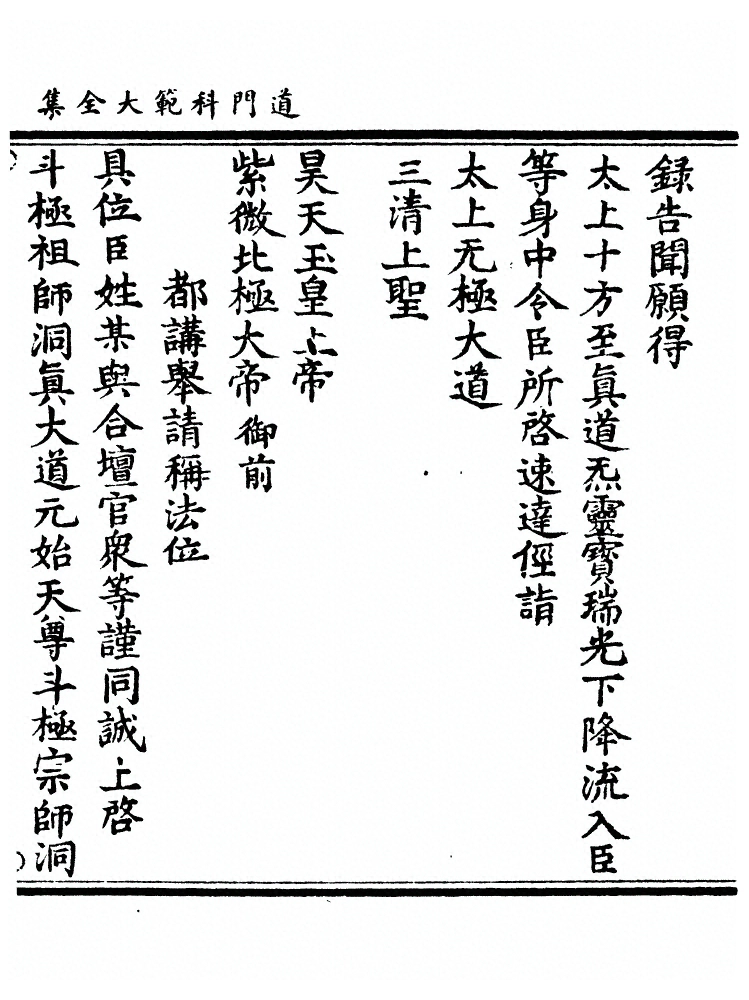 道門科範大全集
録告聞願得
太上十方至眞道炁靈寶瑞光下降流入臣
等身中令臣所啓速達俓詣
太上无極大道
三清上聖
昊天玉皇上帝
紫微北極大帝御前
都講舉請稱法位
具位臣姓某與合壇官衆等謹同誠上啓
斗極祖師洞眞大道元始天尊斗極宗師洞